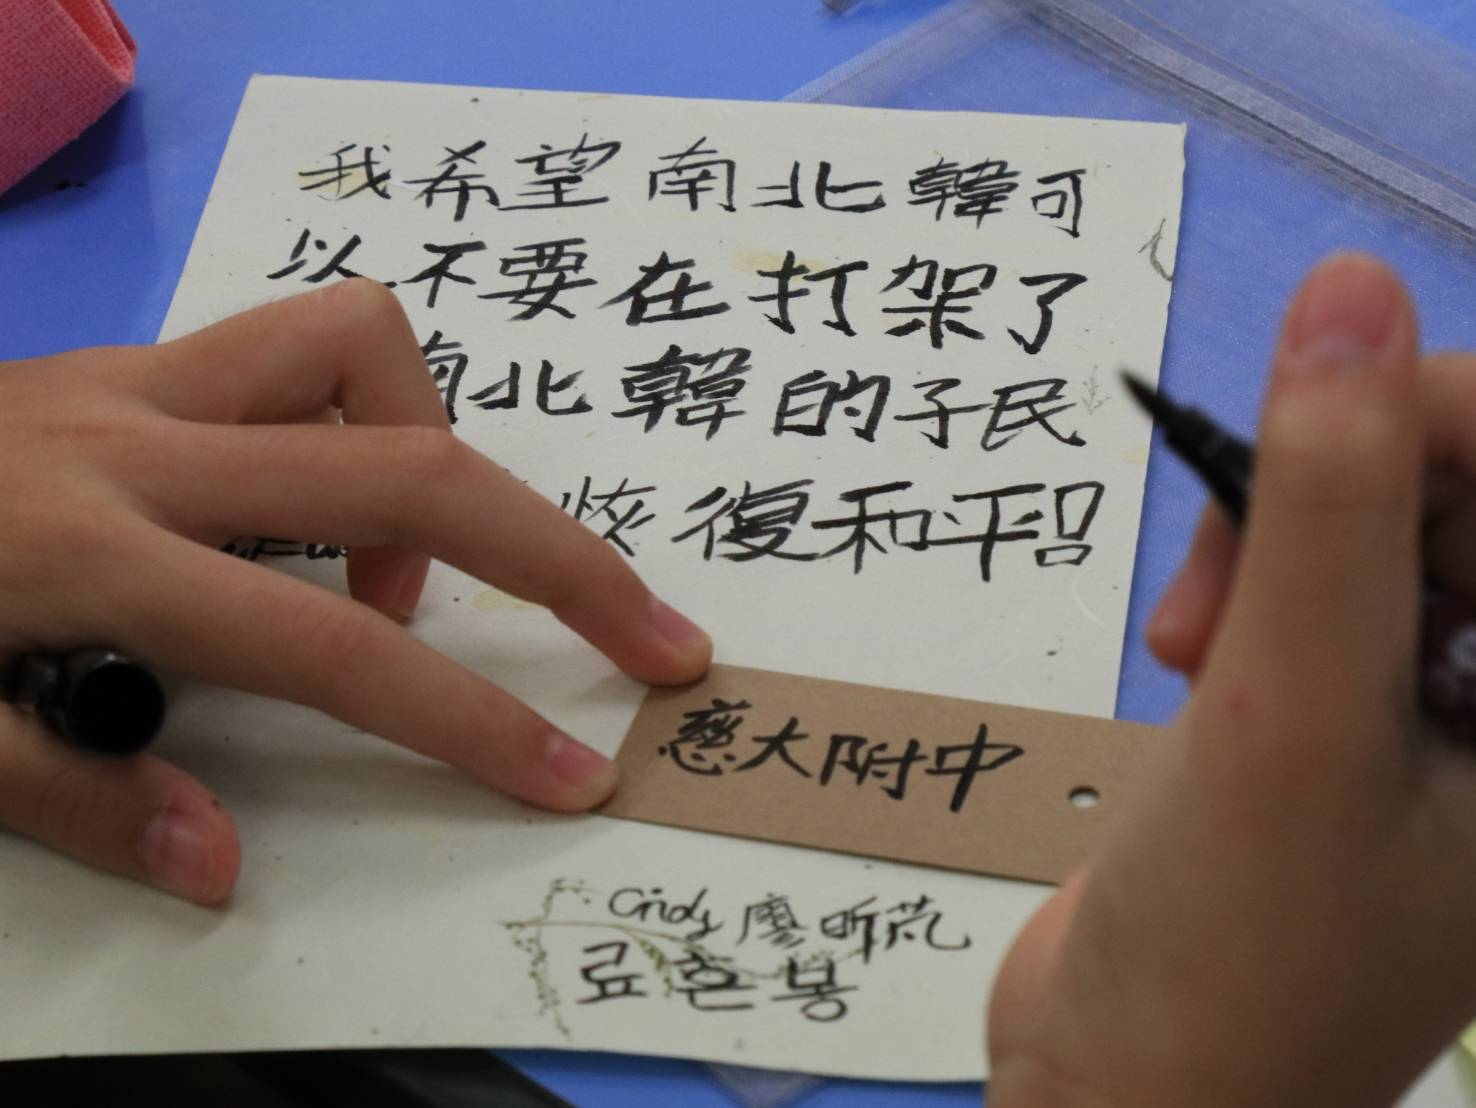 我希望南北韓可
以不要在打架了
南北韓的子民
恢復和平
慈大附中
Cindy 廖昕芃
료흔봉